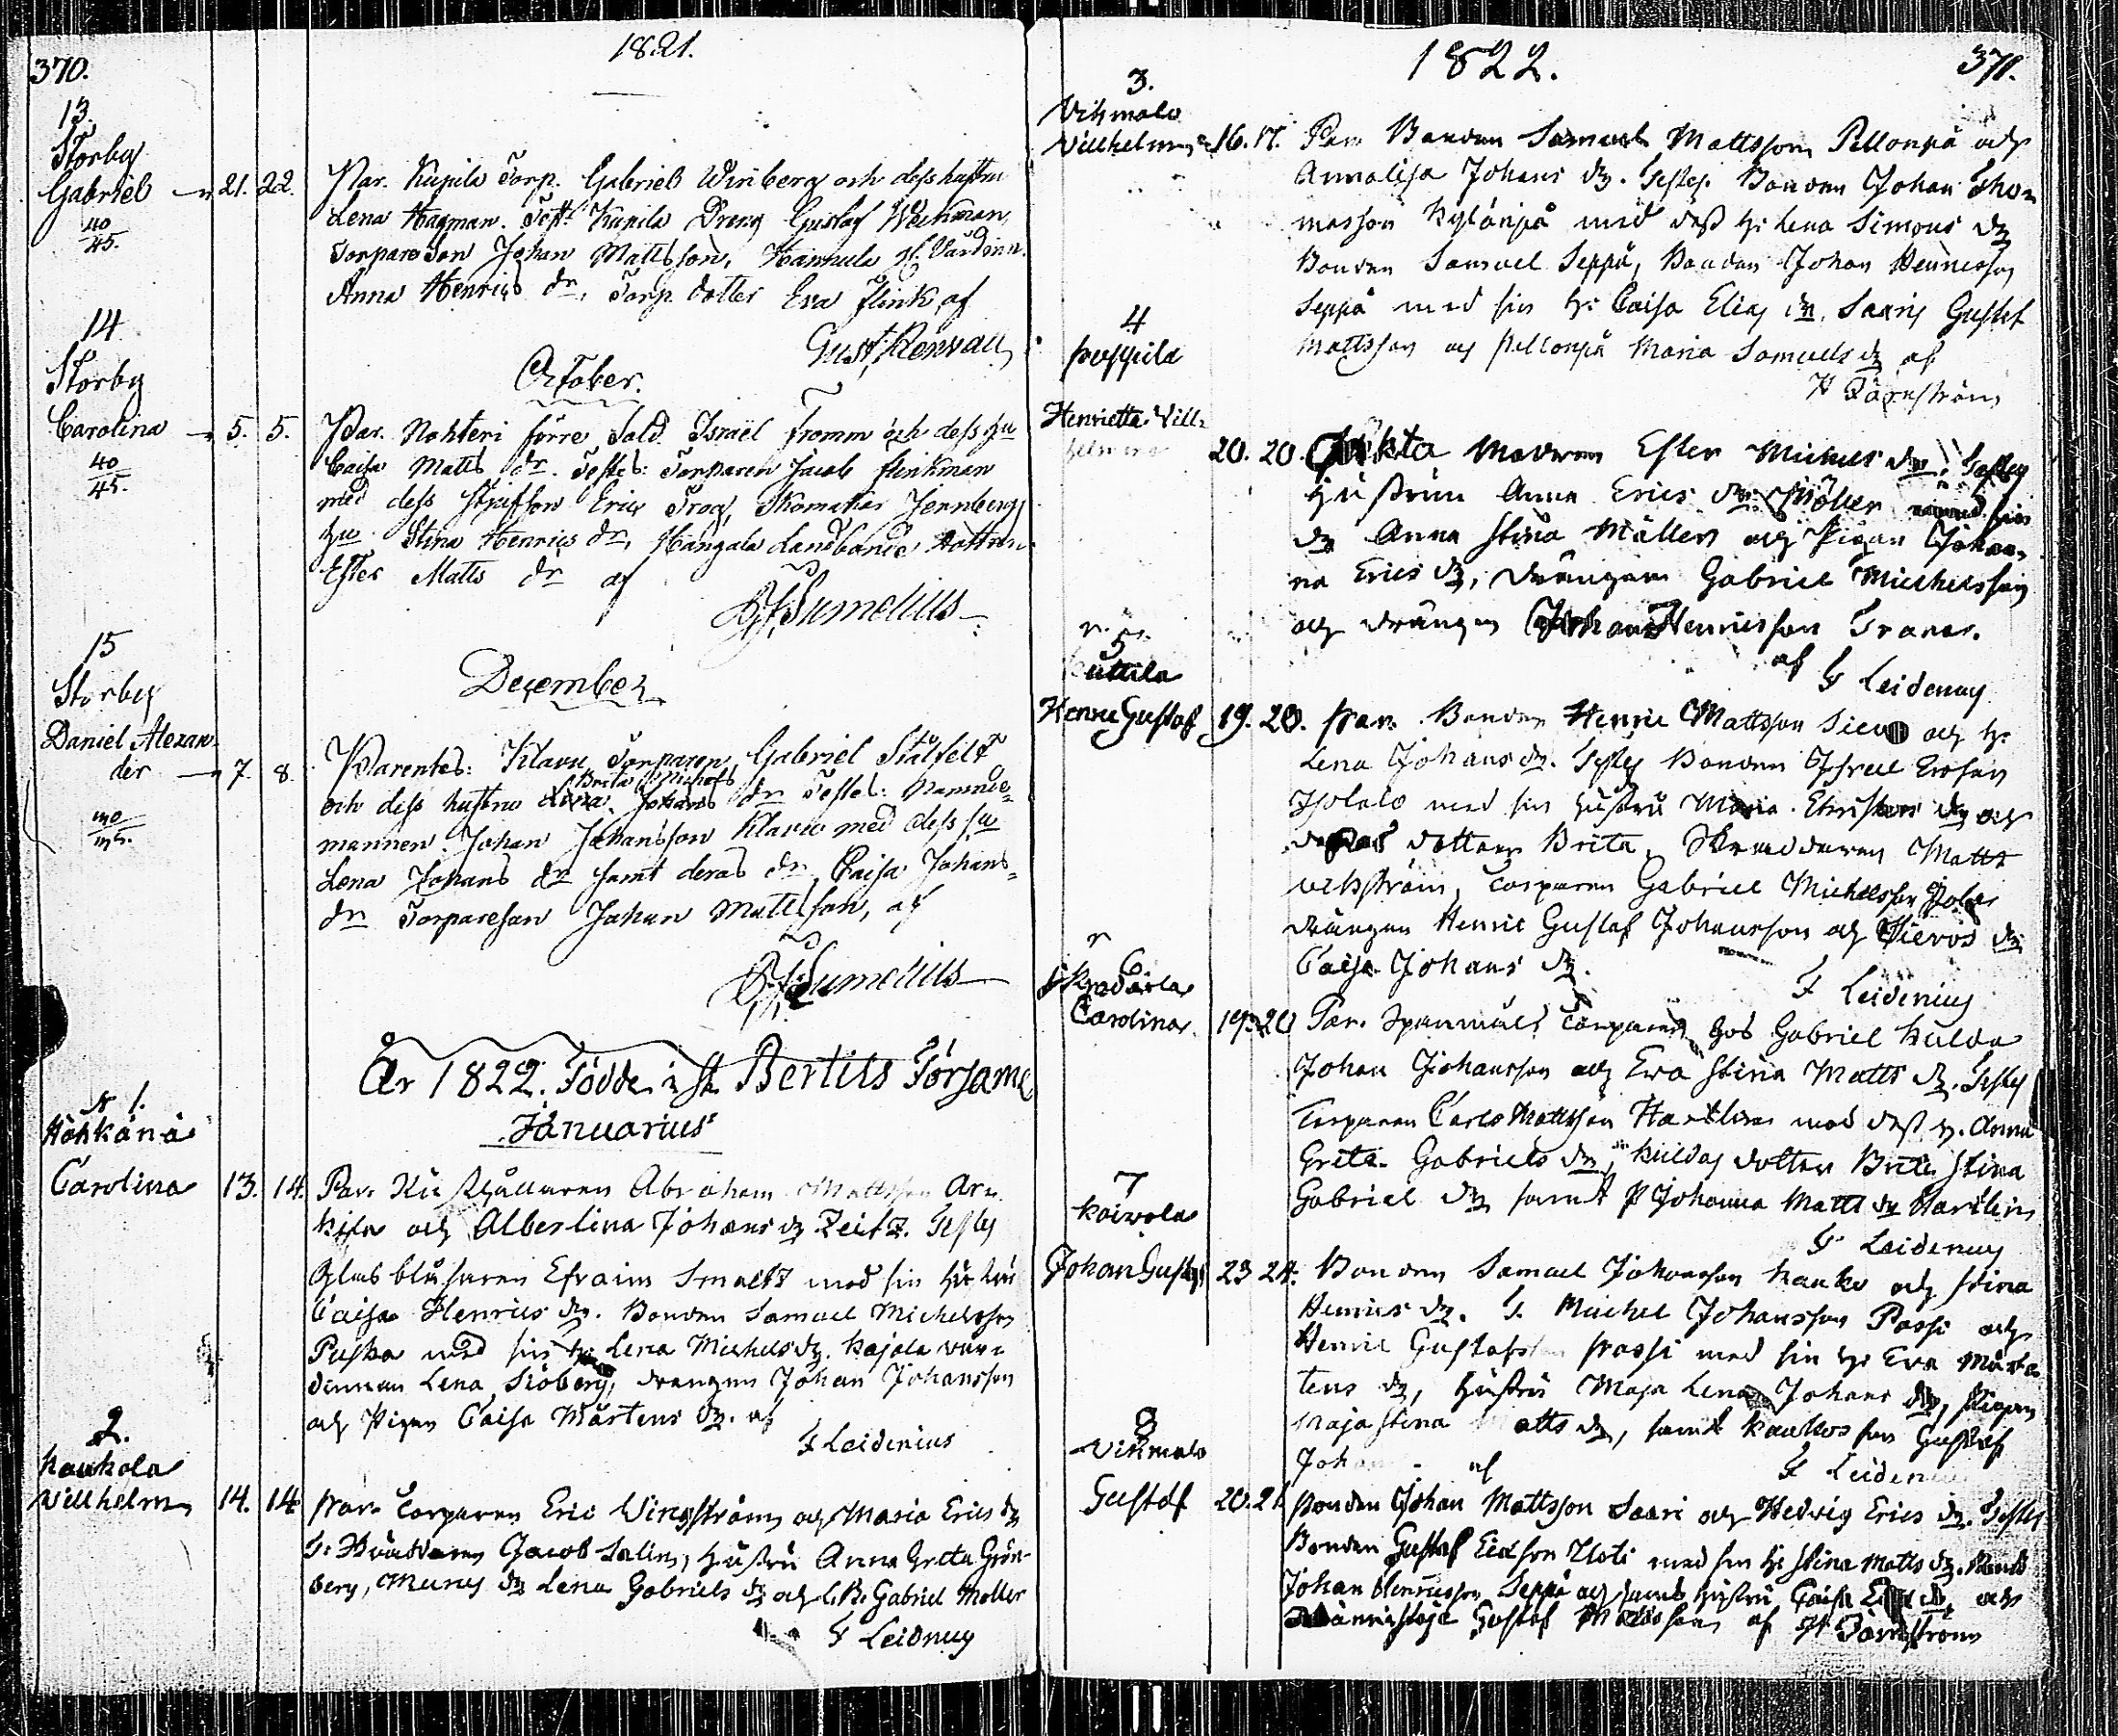 370.
1821.
13.
Storby
Gabriel 21. 22.
40
45.
Par. Kupila Torp. Gabriel Winberg och dess hustru
Lena Hagman. Test. Kupila Dreng Gustaf Wickman
Torpare Son Johan Mattsson, Hannula Vardinn.
Anna Henrics dr, Torp. dotter Eva Flink, af
Gust. Renvall
October.
14
Storby
Carolina 5. 5.
40
45.
Par. Nohteri förre Sold. Israël Fromm och dess hu
Caisa Matts dr. Testes: Torparen Jacob Flinkman
med dess Eric Trog, Skomakar Jernbergs
hu Stina Henrics dr, Hangala Landbonde dottren
Ester Matts dr af
Sumelius
December
15
Storby
Daniel Alexan-
der 7. 8.
40
45.
Parentes: Klavu Torparen Gabriel Stålfelt
Brita Michels
och dess hustru Johans dr Testes: Nämnde-
mannen Johan Johansson Klavu med dess hu
Lena Johans dr samt deras dr, Caisa Johans-
dr Torpareson Johan Mattsson, af
Sumelius
År 1822. Födde i St Bertils Församl
Januarius
N 1.
Höhkänä
Carolina 13. 14.
Par. Abraham Mattsson
och Albertina Johans dr Zeitz. Testes
Glasblåsaren Efraim Smaltz med sin hustru
Caisa Henrics dr. Bonden Samuel Michelsson
Puska med sin h: Lena Michels dr. Kajala vär-
dinnan Lena Siöberg, drängen Johan Johansson
och Pigan Caisa Mårtens dr. af
F Leidenius
2.
Kaukola
Villhelm 14. 14
Par. Torparen Eric Vingström och Maria Erics dr
T. Jacob Salin, hustru Anna Greta Grön-
berg, dr Lena Gabriels dr och Gabriel Möller
F Leidenius
1822.
371.
3.
Vihmalo
Villhelmina 16. 17.
Par. Bonden Samuel Mattsson Pellonpä och
Annalisa Johans dr. Testes. Bonden Johan Tho-
masson Kylänpä med dess h: Lena Simons dr
Bonden Samuel Seppä, Bonden Johan Henricsson
Seppä med sin h: Caisa Elias dr, Saaris Gustaf
Mattsson och Pellonpä Maria Samuels dr af
H Törnström
4
Henrietta Vill-
helmina 20. 20.
Oäkta Modren Ester Michels dr. Testes
hustrun Anna Erics dr Möller med sin
dr Anna Stina Möller och Pigan Johan-
na Erics dr, drängen Gabriel Michelsson
och drängen Johan Henricsson Frans.
af F Leidenius
5
Kuttila
Henric Gustaf 19. 20.
Par. Bonden Henric Mattsson Sieve och h:
Lena Johans dr. Testes Bonden Israel Ersson
Isotalo med sin hustru Maria Christers dr och
deras dotter Brita, Skreddaren Matts
Torparen Gabriel Michelsson
drängen Henric Gustaf Johansson och Sievos dr
Caisa Johans dr.
F Leidenius
6
Carolina 19. 20
Par. Torparen hos Gabriel Kulda
Johan Johansson och Eva Stina Matts dr. Testes
Torparen Carl Mattsson Hartlin med dess h. Anna
Greta Gabriels dr, Kuldas dotter Brita Stina
Gabriels dr samt P Johanna Matts dr Hartlin
F Leidenius
7
Koivola
Johan Gustaf 23 24.
Bonden Samuel Johansson Kauko och Stina
Henrics dr. T. Michel Johansson Passi och
Henric Gustafsson Passi med sin h: Eva Mår-
tens dr, hustru Maja Lena Johans dr, Pigan
Maja Stina Matts dr, samt Kaukos son Gustaf
Johan af F Leidenius
8
Vihmalo
Gustaf 20. 21
Bonden Johan Mattsson Saari och Hedvig Erics dr. Testes
Bonden Gustaf Ericsson Uoti med sin h: Stina Matts dr. Bond
Johan Henricsson Seppä och hans hustru Caisa Elias dr, och
Gustaf Mattsson af H Törnström